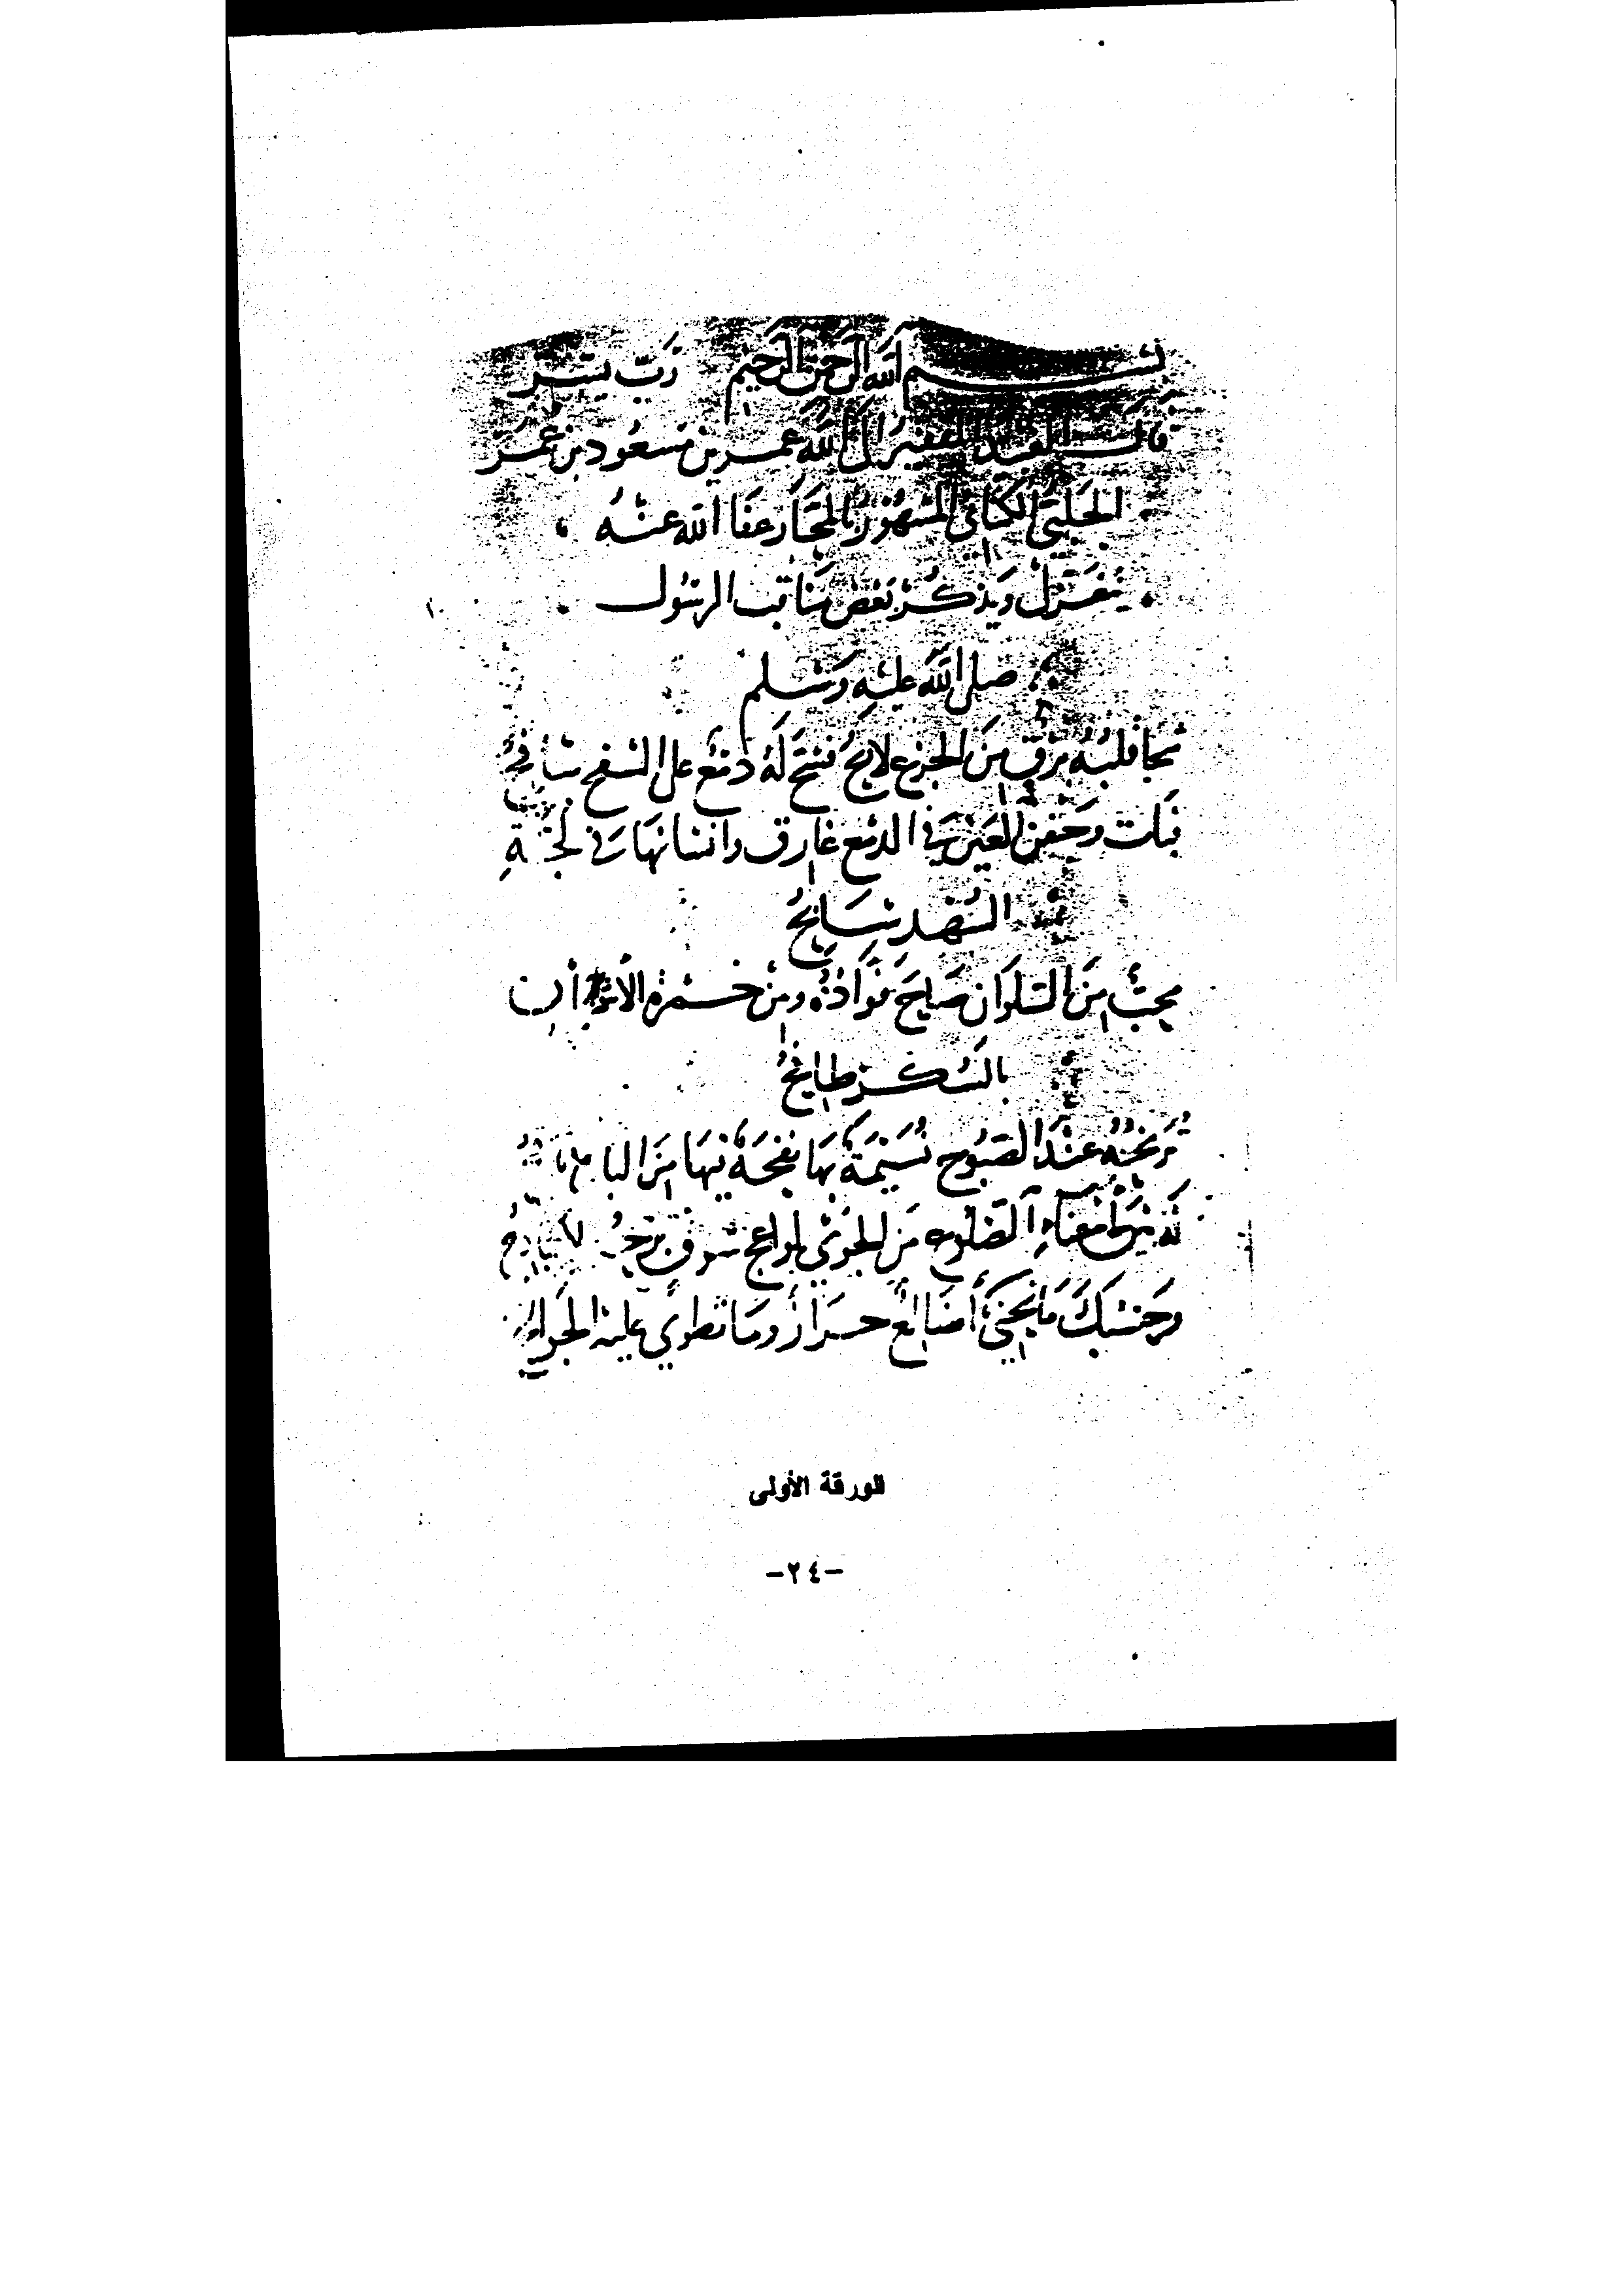 بسم الله الرحمن الرحيم رَبِّ يسّر
قال العبد الفقير الى الله عمر بن مسعود بن عمر
الحلبي الكناني المشهور بالمحّار عفا الله عنه
يتغزل ويذكر بعض مناقب الرسول
صلى الله عليه وسلم
شجا قلبه برق من الجزع لايح فسح له دمع على السفح سافح
فبات وجفن العين في الدمع غارق وانسانها في لجة
السهد سابح
محب من السلوان صاح فواده ومن خمرة الأشواق
بالسكر طافح
ترنحه عند الصبوح نسيمة بها نفحة فيها من البان
له بين احناء الضلوع من الجوى لواعج شوق
وحسبك ما تحني أضالع حرار وما تطوي عليه الجوانح
الورقة الأولى
-٢٤-